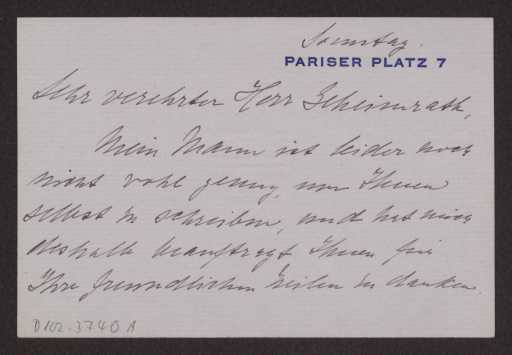 Sonntag.
PARISER PLATZ 7
Sehr verehrter Herr Geheimrath,
Mein Mann ist leider noch
nicht wohl genug, um Ihnen
selbst zu schreiben, und hat mich
deshalb beauftragt Ihnen für
Ihre freundlichen Zeilen zu danken.
D102.3740A